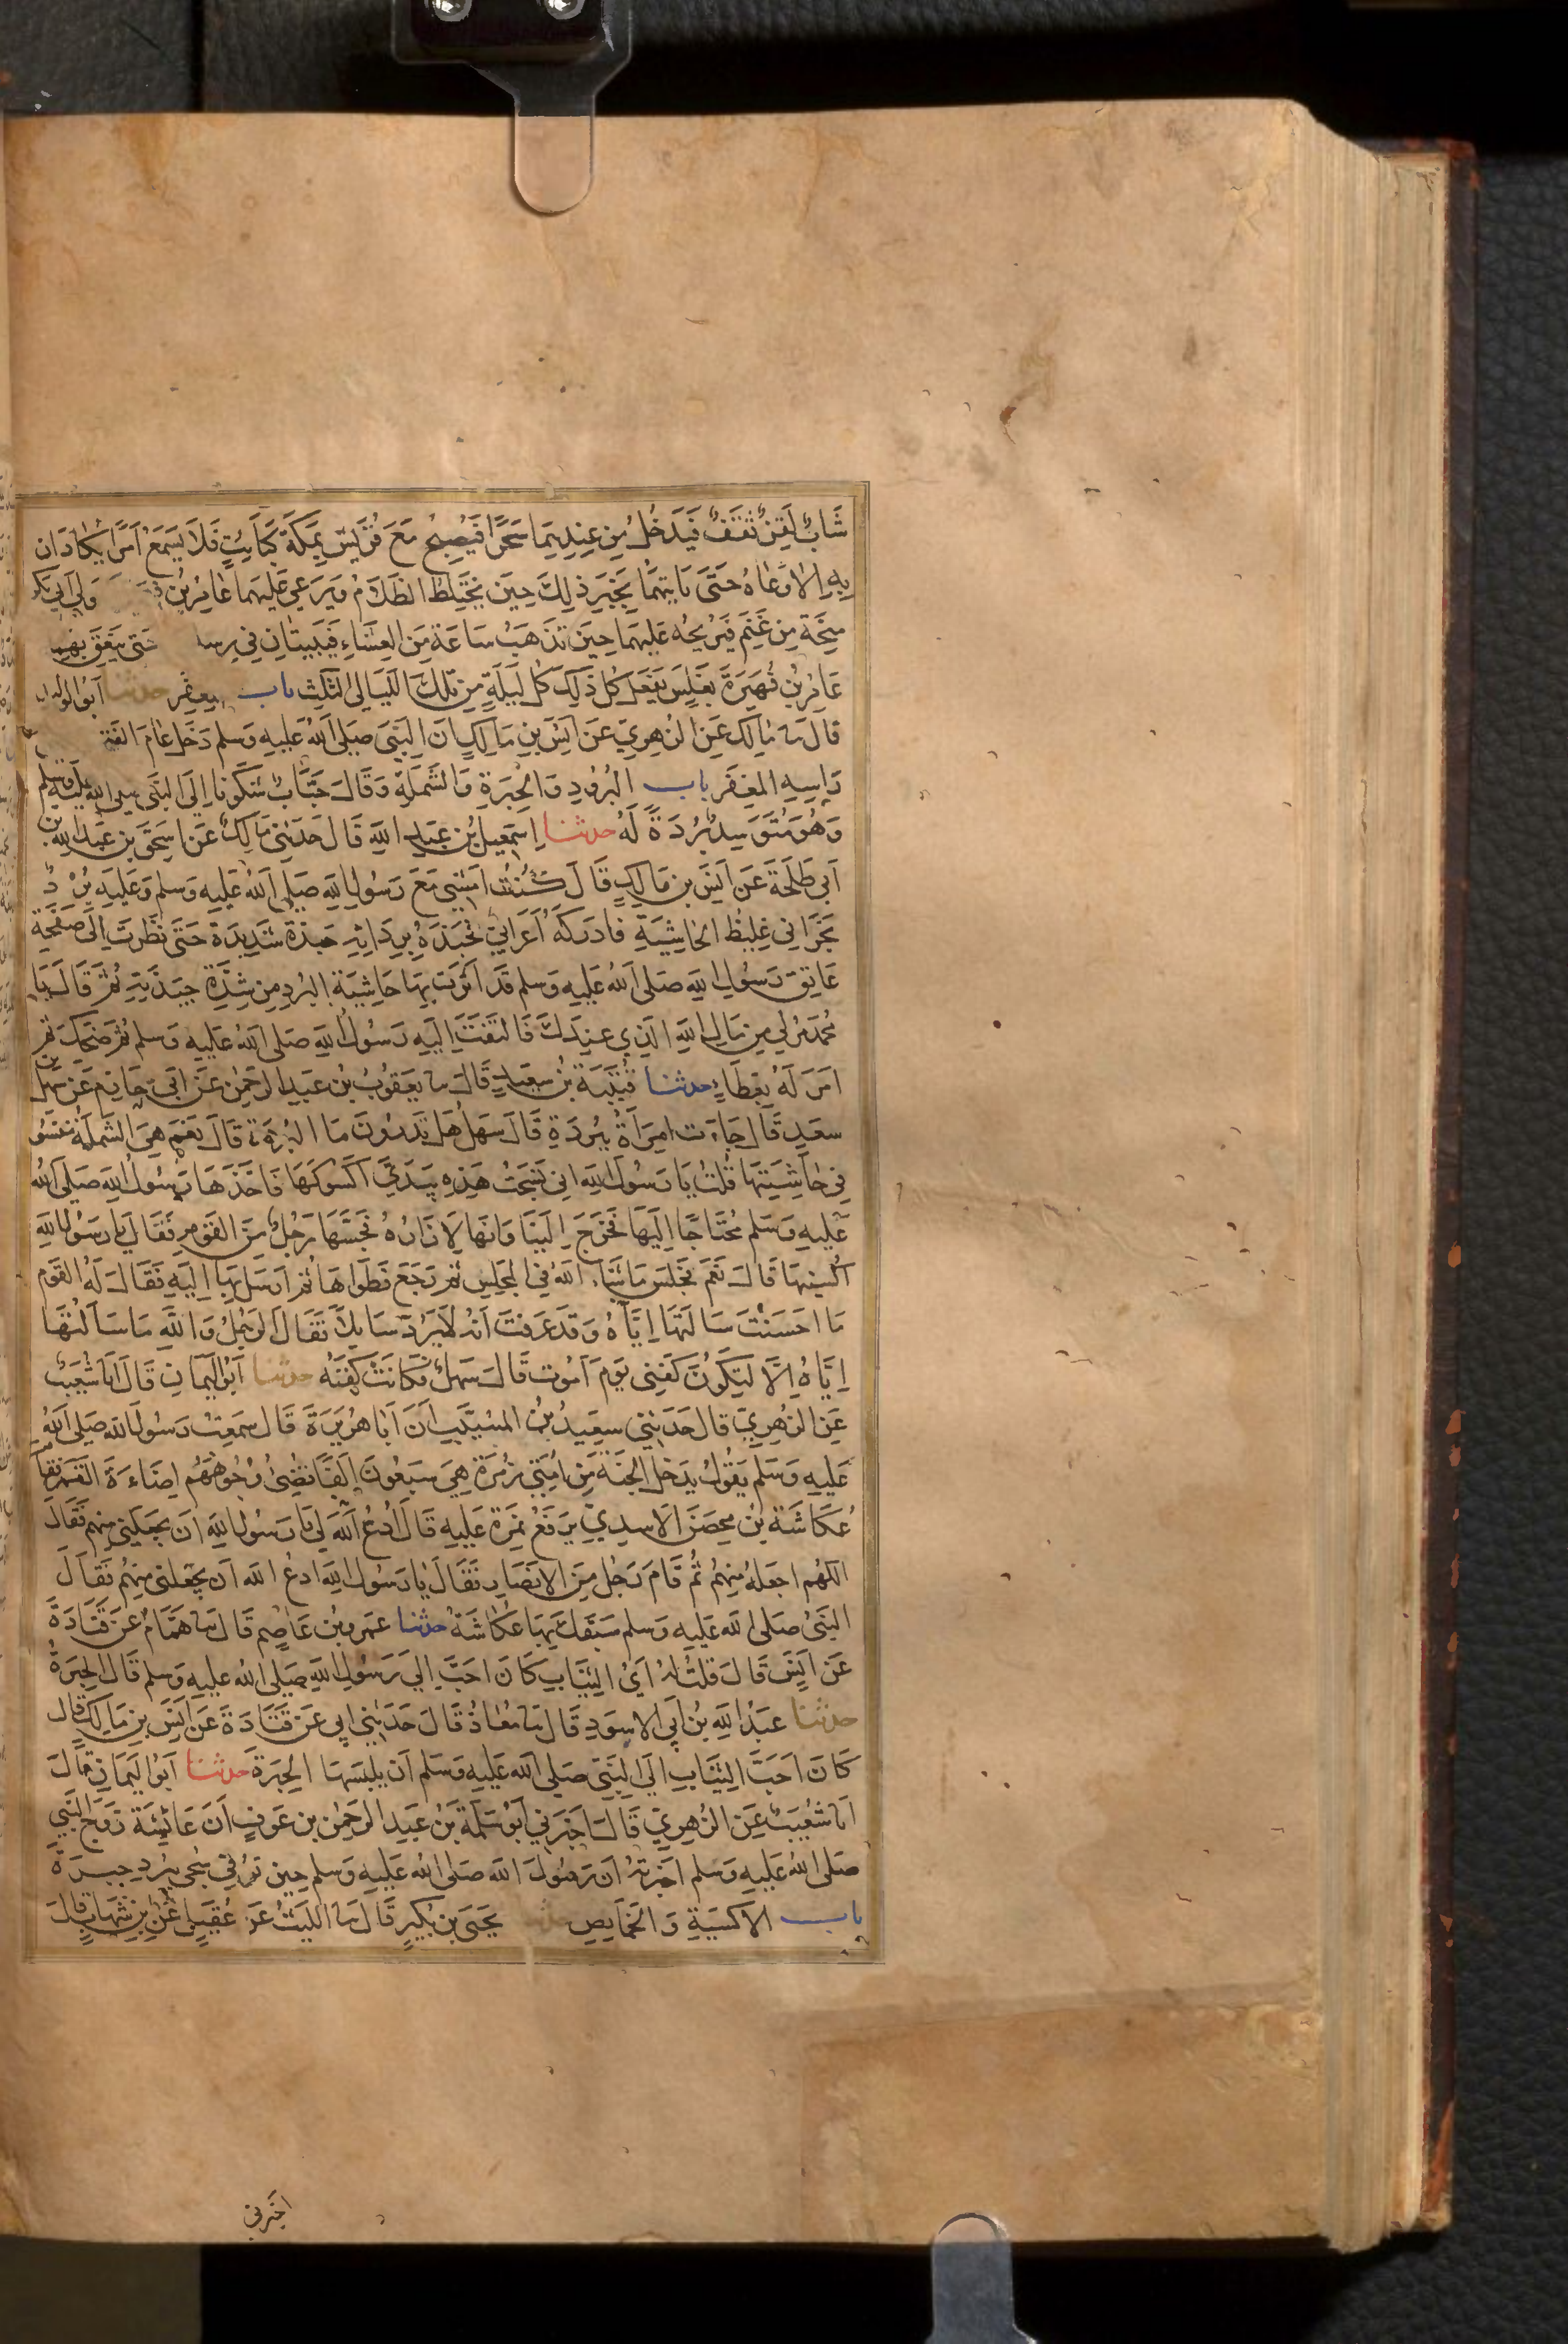 شَابٌّ لَقِنٌ ثَقِفٌ فَيَدْخُلُ مِن عِندِهِمَا سَحَرًا فَيُصبِحُ مَعَ قُرَيشٍ بِمَكَّةَ كَبَائِتٍ فَلَا يَسمَعُ اَمرًا يُكَادَانِ
بِهِ اِلا وَعَاهُ حَتَّى يَاتِيَهُمَا بِخَبَرِ ذَلِكَ حِينَ يَختَلِطُ الظَّلَامُ وَيَرعَى عَلَيهِمَا عَامِرُ بنُ مَولَى اَبِي بَكر
مِنحَة مِن غَنَمٍ فَيُرِيحُه عَلَيهِمَا حِينَ تَذهَبُ سَاعَة مِنَ العِشَاءِ فَيَبِيتَانِ فِي رسلـ حَتَّى يَنعِقَ بِهِمَا
عَامِرُ بنُ فُهَيرَةَ بِغَلَسٍ يَفعَلُ كُلَّ ذَلِكَ كُلَّ لَيلَةٍ مِن تِلكَ اللَّيَالِي الثَّلٰثِ باب المغفر حدثنا اَبُو الوليد
قَالَ نا مَالِك عَنِ الزُّهرِيِّ عَن اَنَسِ بنِ مَالِكٍ اَنَّ النَّبِيَّ صَلَى اَللهُ عَلَيهِ وَسَلم دَخَلَ عَامَ الفَتـ
رَاسِهِ المِغفَر باب البُرُودِ وَالحِبَرَةِ وَالشَّملَةِ وَقَالَ خَبَّابٌ شَكَونَا اِلَى النَّبِى صلى الله عَلَيهِ وسلم
وَهُوَ مُتَوَسِدٌ بُردَةً لَهُ حدثنا اِسمٰعِيلُ بنُ عَبدِ اللهِ قَالَ حَدَثَنِي مَالِكٌ عَن اِسحٰقَ بنِ عَبدِ اللهِ بن
اَبِي طَلحَةَ عَن اَنَسِ بنِ مَالِكٍ قَالَ كُنتُ اَمشِي مَعَ رَسُولِ اللهِ صَلى اَللهُ عَلَيهِ وَسلم وَعَلَيهِ بُردٌ
نَجرَانِي غَلِيظُ الحَاشِيَةِ فَادرَكَهُ اَعرَابِيٌّ فَجَبَذَهُ بِرِدَائِهِ جَبذَة شَدِيدَة حَتَى نَظَرتُ اِلَى صَفحَةِ
عَاتِقِ رَسُولِ اللهِ صَلى اَللهُ عَلَيهِ وَسلم قَد اَثَرَت بِهَا حَاشِيَة البُردِ مِن شِدَّةِ جَبذَتِهِ ثُمَّ قَالَ يَا
مُحَمد مُر لِي مِن مَالِ اللهِ الَذِي عِندَكَ فَالتَفَتَ اِلَيهِ رَسُولُ اللهِ صَلى اَللهُ عَلَيهِ وَسَلم ثُمَ ضَحِكَ ثم
اَمَرَ لَهُ بِعَطَاءٍ حدثنا قُتَيبَة بن سَعِيدٍ قَالَ نا يَعقُوبُ بنُ عَبدِ الرَحمٰنِ عَن اَبِي حَازِم عَن سَهلِ بن
سَعدٍ قَالَ جَاءَت اِمرَاَةٌ بِبُردَةٍ قَالَ سَهلٌ هَل تَدرُونَ مَا البُردَة قَالَ نَعَم هِيَ الشَّملَةُ مَنسُو
فِي حَاشِيَتِهَا قُلتُ يَا رَسُولَ اللهِ اِني نَسَجتُ هَذِهِ بِيَدَيَّ اَكسُوكَهَا فَاَخَذَهَا رَسُولُ اللهِ صَلَى اَللهُ
عَلَيهِ وَسَلم مُحتَاجًا اِلَيهَا فَخَرَجَ اِلَينَا وَاِنَهَا لَاِزَارُهُ فَجَسَّهَا رَجُلٌ مِنَ القَومِ فَقَالَ يَا رَسُولَ اللهِ
اُكسُنِيهَا قَالَ نَعَم فَجَلَسَ مَا شَاءَ اللهُ فِي المَجلِسِ ثُمَ رَجَعَ فَطَوَاهَا ثُم اَرسَلَ بِهَا اِلَيهِ فَقَالَ لَهُ القَوم
مَا اَحسَنتَ سَاَلتَهَا اِيَّاهُ وَقَد عَرَفتَ اَنه لَايَرُدّ سَايِلًا فَقَالَ الرَجُلُ وَاللهِ مَا سَاَلتُهَا
اِيَّاهُ اِلَّا لِتَكُونَ كَفَنِي يَومَ اَمُوت قَالَ سَهلٌ فَكَانَت كَفَنَهُ حدثنا اَبُو اليَمَانِ قَالَ انا شُعَيب
عَنِ الزُهرِيِّ قَالَ حَدَثَنِي سَعِيدُ بنُ المُسَيَّبِ اَنَ اَبَا هُرَيرَةَ قَالَ سَمِعتُ رَسُولَ اللهِ صَلى اَللهُ
عَلَيهِ وَسَلم يَقُولُ يَدخُلُ الجَنَةَ مِن اُمَّتِي زُمرَة هِيَ سَبعُونَ اَلفًا تُضِيُ وُجُوهَهُم اِضَاءَةَ القَمَرِ فقام
عُكَاشَةُ بنُ مِحصَن الاَسَدِيّ يَرفَعُ نَمِرَة عَلَيهِ قَالَ اُدعُ اللهَ لِي يَا رَسُولَ اللهِ اَن يَجعَلَنِي مِنهُم فَقَالَ
اللهُم اجعَلهُ مِنهُم ثُم قَامَ رَجُل مِنَ الاَنصَارِ فَقَالَ يَا رَسُولَ اللهِ ادعُ الله اَن يَجعَلَنِي مِنهُم فَقَالَ
النَبِيُّ صَلى الله عَلَيهِ وَسلم سَبَقَكَ بِهَا عُكَاشَةُ حدثنا عَمرُو بن عَاصِم قَالَ نا هَمَّامٌ عَن قَتَادَةَ
عَن اَنَسٍ قَالَ قُلتُ لَهُ اَيُّ الثِيَابِ كَانَ اَحَبَّ اِلَى رَسُولِ اللهِ صَلى الله عَلَيهِ وَسلم قَالَ الحِبَرَةُ
حدثنا عَبدُ اللهِ بنُ اَبِي الاَسوَدِ قَالَ نا مُعَاذٌ قَالَ حَدَثَنِي اَبِي عَن قَتَادَةَ عَن اَنَسِ بنِ مَالِكٍ قَالَ
كَانَ اَحَبَّ الثِيَابِ اِلَى النَبِيِّ صَلى الله عَلَيهِ وَسَلم اَن يَلبَسَهَا الحِبَرَةَ حدثنا اَبُو اليَمَانِ قَالَ
انا شُعَيبٌ عَنِ الزُهرِيِّ قَالَ اَخبَرَنِي اَبُو سَلَمَةَ بنُ عَبدِ الرَحمٰنِ بنِ عَوفٍ اَنَ عَائِشَةَ زَوجَ النَبِي
صَلى اللهُ عَلَيهِ وَسلم اَخبَرَتهُ اَنَ رَسُولَ اللهِ صَلى الله عَلَيهِ وسلم حِينَ تُوُفِّي سُجِّيَ بِبُردِ حِبَرَةٍ
باب الاَكسِيَةِ وَالخَمَايِصِ حدثنا يَحيَى بن بُكَيرٍ قَالَ نا اللَيثُ عَن عُقَيلٍ عَنِ ابنِ شِهَابٍ قَالَ
اخبرني